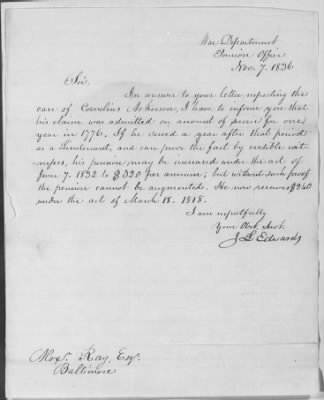 War Department
Pension Office
Nov. 7. 1836
Sir,
In answer to your letter respecting the
case of Cornelius Ackerson, I have to inform you that
his claim was admitted on account of service for one
year in 1776. If he served a year after that period
as a Lieutenant, and can prove the fact by credible wit-
nesses, his pension may be increased under the act of
June 7. 1832 to $320 per annum; but without such proof
the pension cannot be augmented. He now receives $240
under the act of March 18. 1818.
I am respectfully
Your Obt. Servt.
J L Edwards
Alexr. Kay, Esqr.
Baltimore